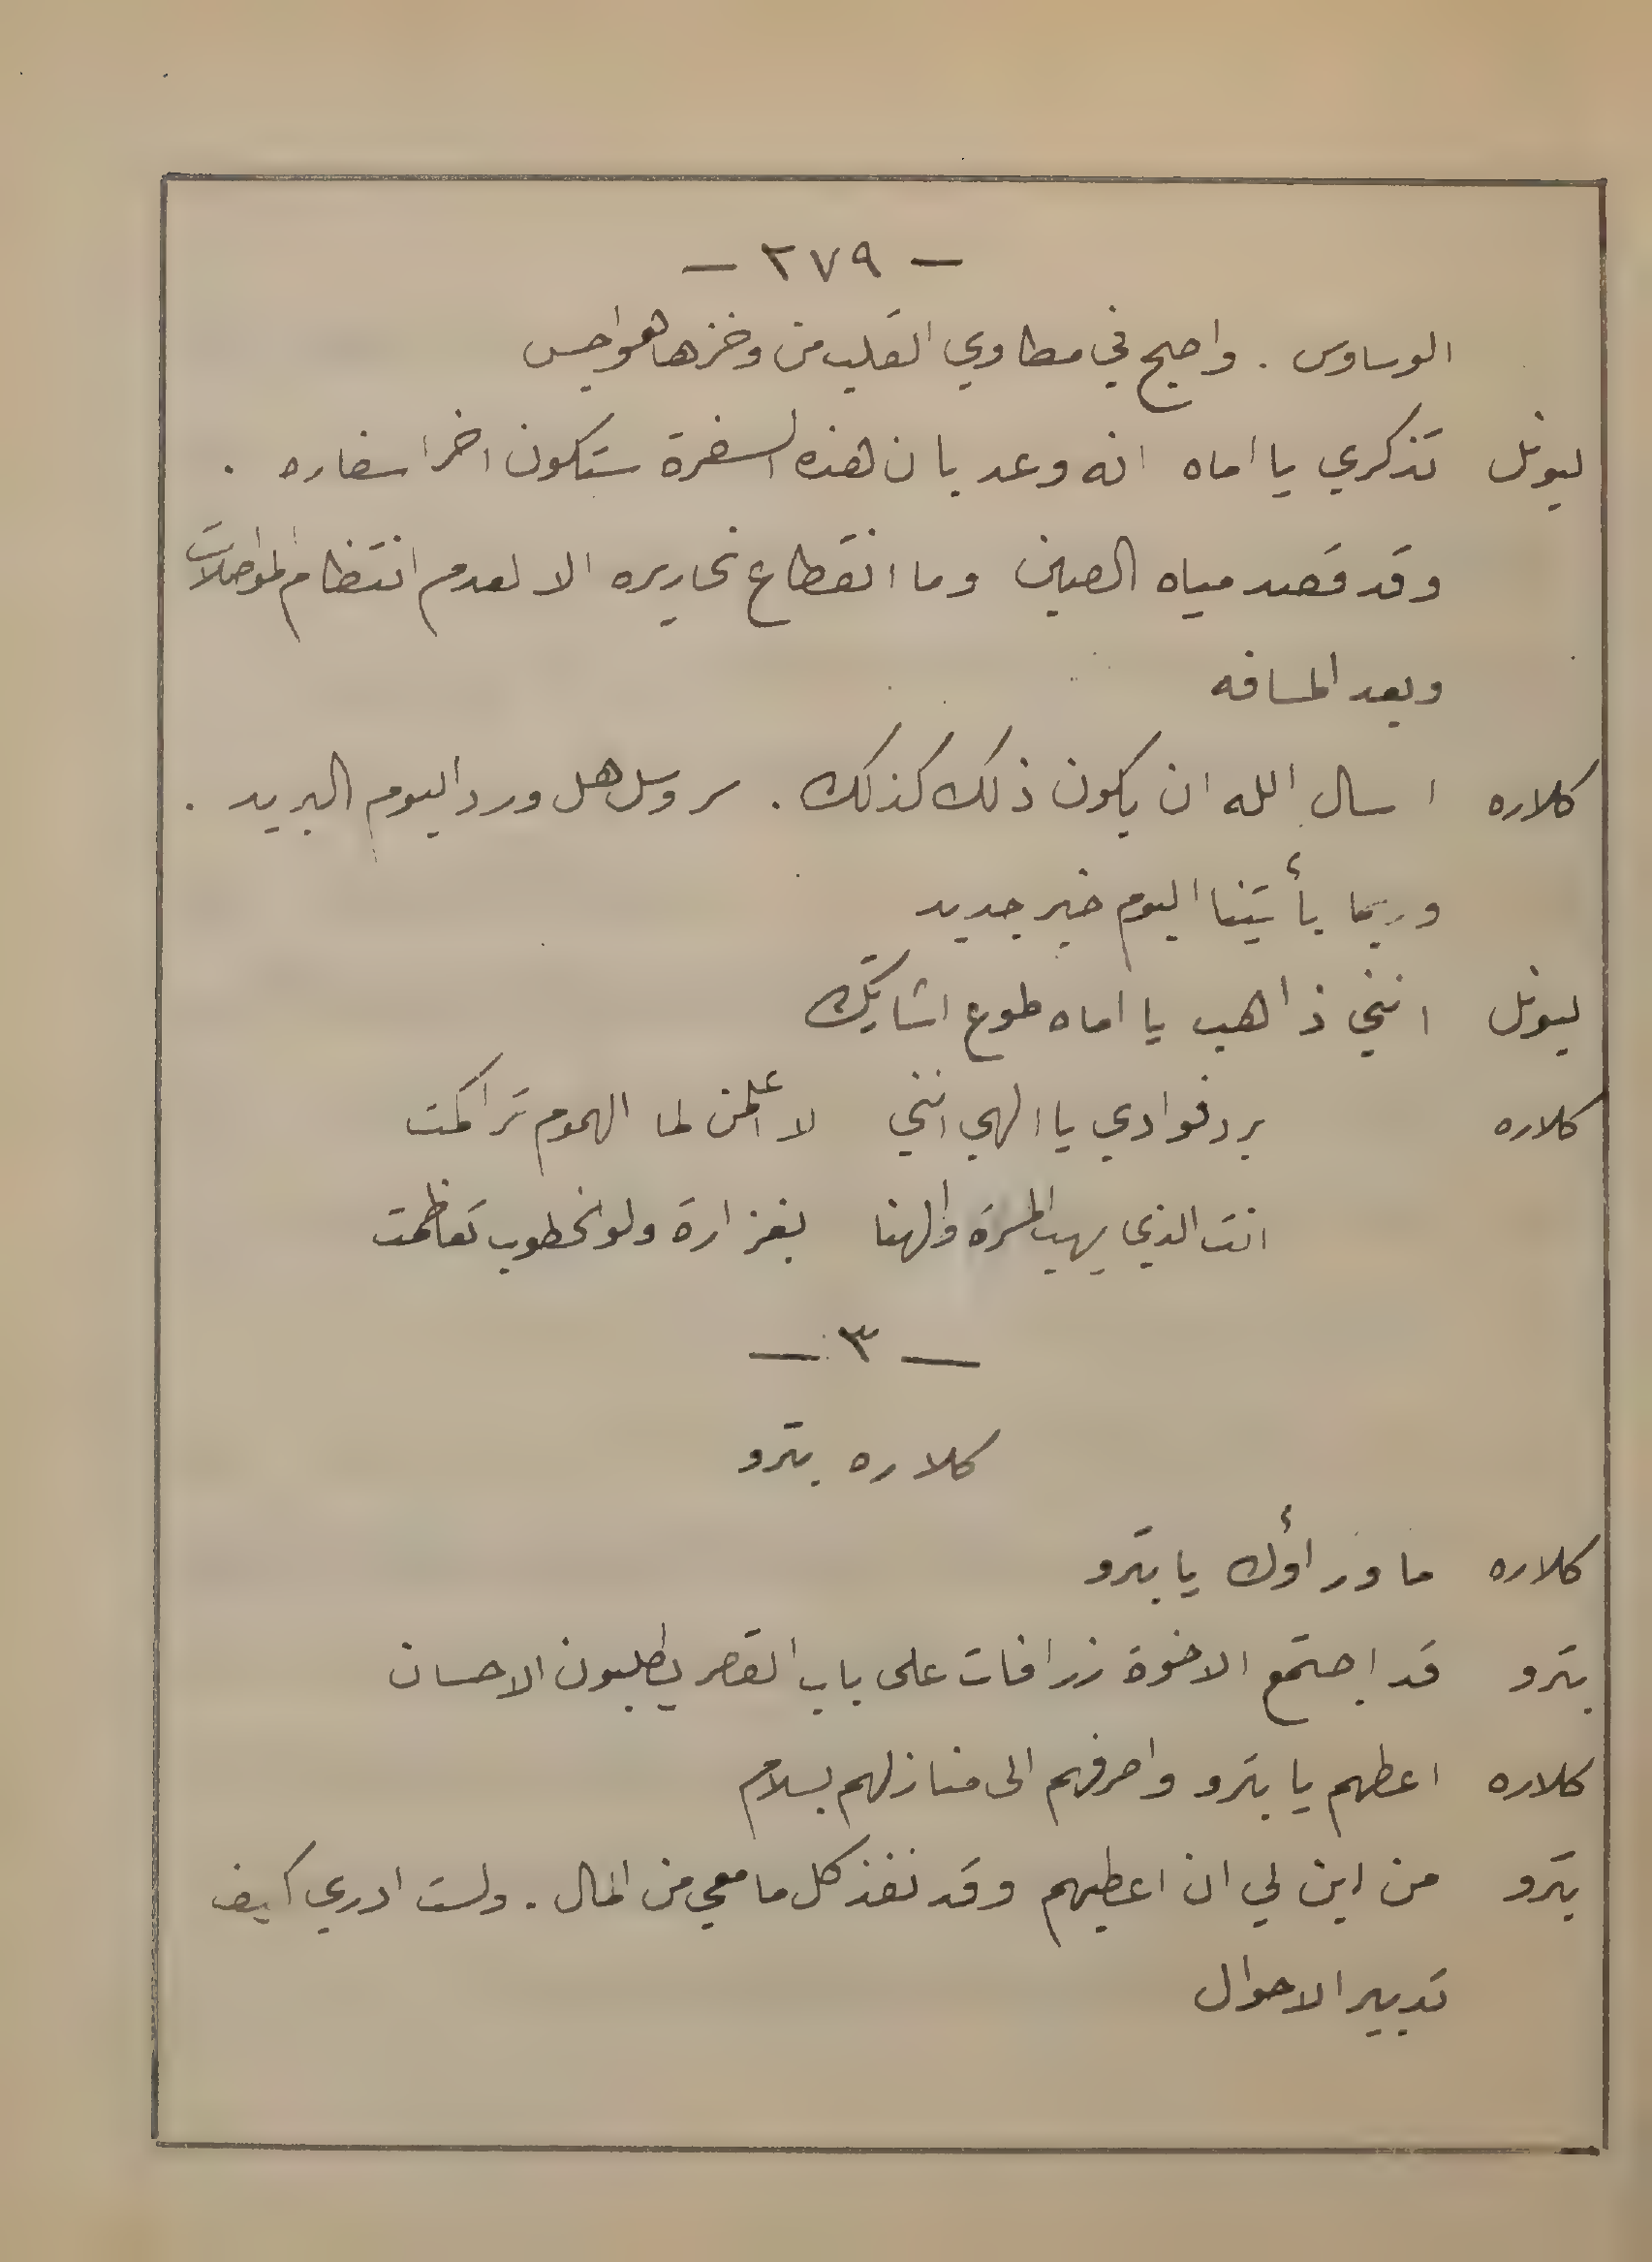 — ٢٧٩ —
الوساوس . واصبح في مطاوي القلب من وخزها هواجس
ليونل تذكري يا اماه انه وعد بان هذه السفرة ستكون اخر اسفاره .
وقد قصد مياه الصين وما انقطاع تحاريره الا لعدم انتظام المواصلات
وبعد المسافه
كلاره اسال الله ان يكون ذلك كذلك . سر وسل هل ورد اليوم البريد .
وربما يأتينا اليوم خبر جديد
ليونل انني ذاهب يا اماه طوع اشارتك
كلاره برد فوادي يا الهي انني لا علمن لها الهموم تراكمت
انت الذي يهب المسرة والهنا بغزارة ولو الخطوب تعاظمت
— ٣ —
كلاره بترو
كلاره ما وراؤك يا بترو
بترو قد اجتمع الاخوة زرافات على باب القصر يطلبون الاحسان
كلاره اعطهم يا بترو واصرفهم الى منازلهم بسلام
بترو من اين لي ان اعطيهم وقد نفذ كل ما معي من المال . ولست ادري كيف
تدبير الاحوال